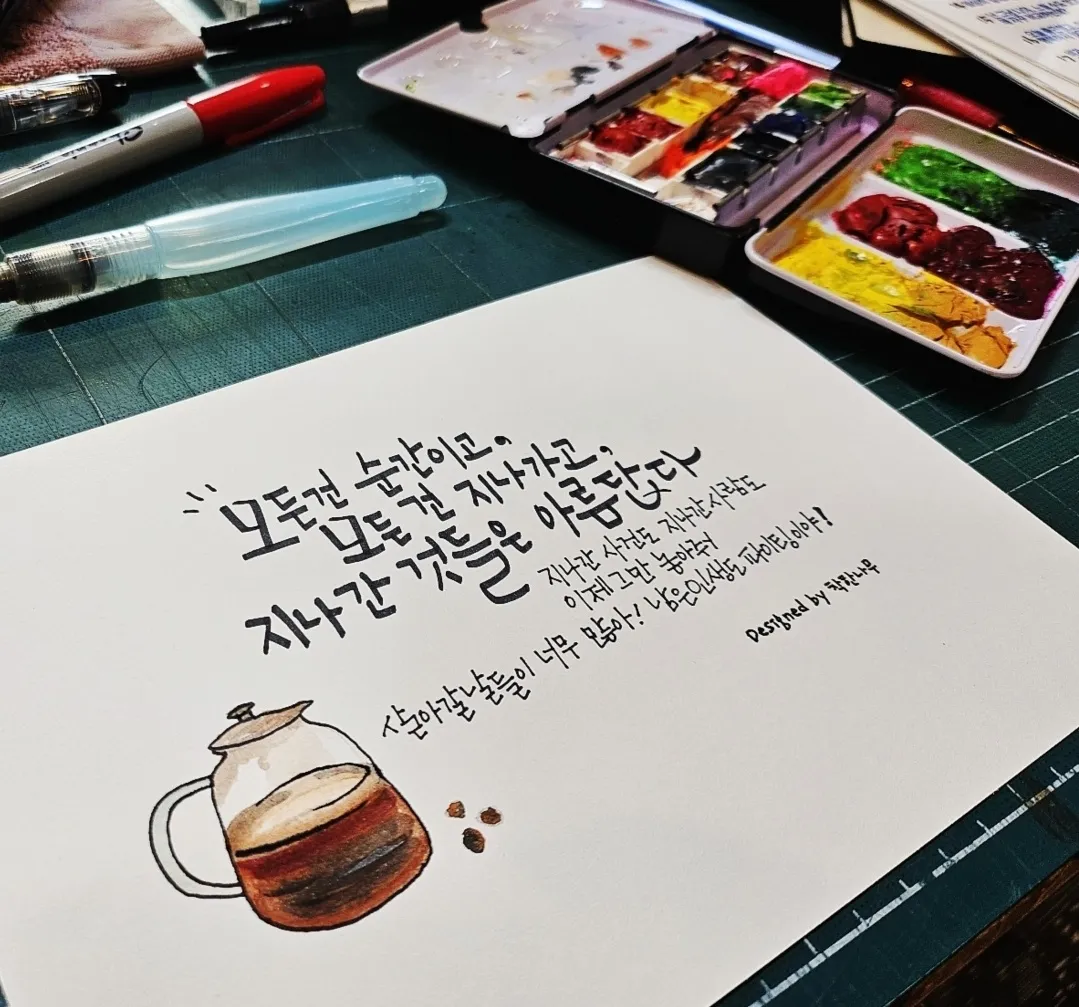 "모든건 순간이고,
모든건 지나가고,
지나간 것들은 아름답다
지나간 사건도 지나간 사람도
이제 그만 놓아줘
살아갈날들이 너무 많아! 남은인생도 파이팅이야!
Designed by 착한나무